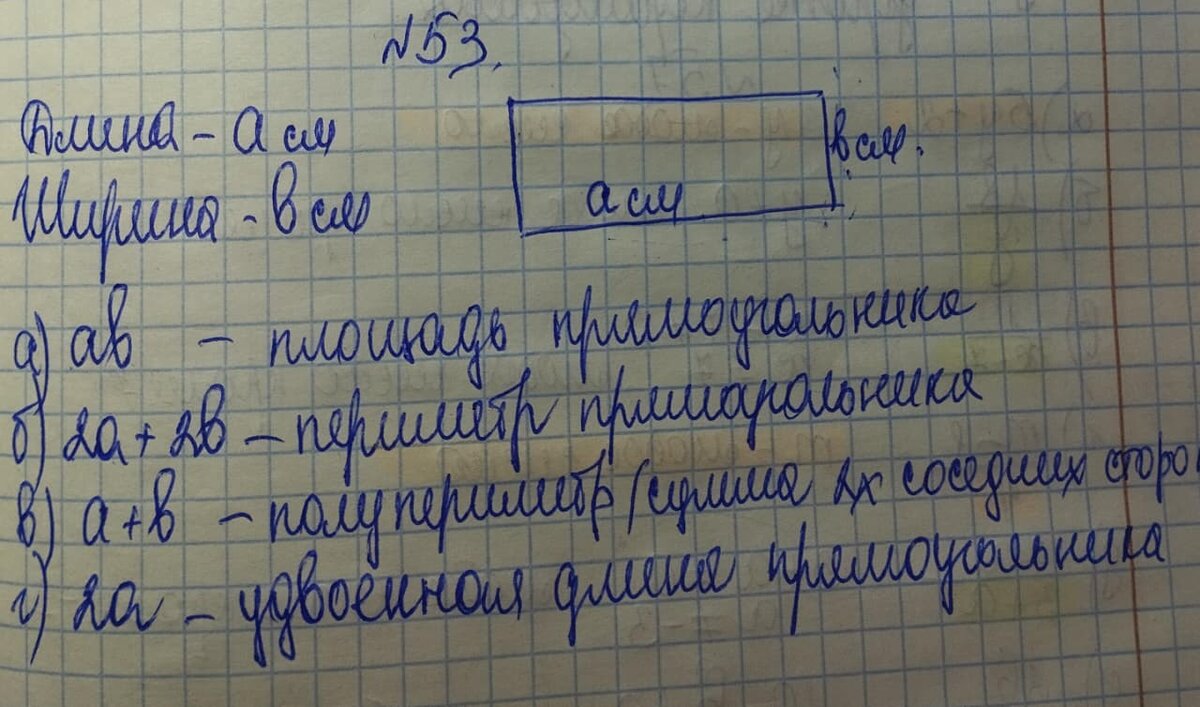 №53.
Длина - а см
в см.
Ширина - в см
а см
а) ав - площадь прямоугольника
б) 2а + 2в - периметр прямоугольника
в) а + в - полупериметр/сумма 2х соседних сторо
г) 2а - удвоенная длина прямоугольника